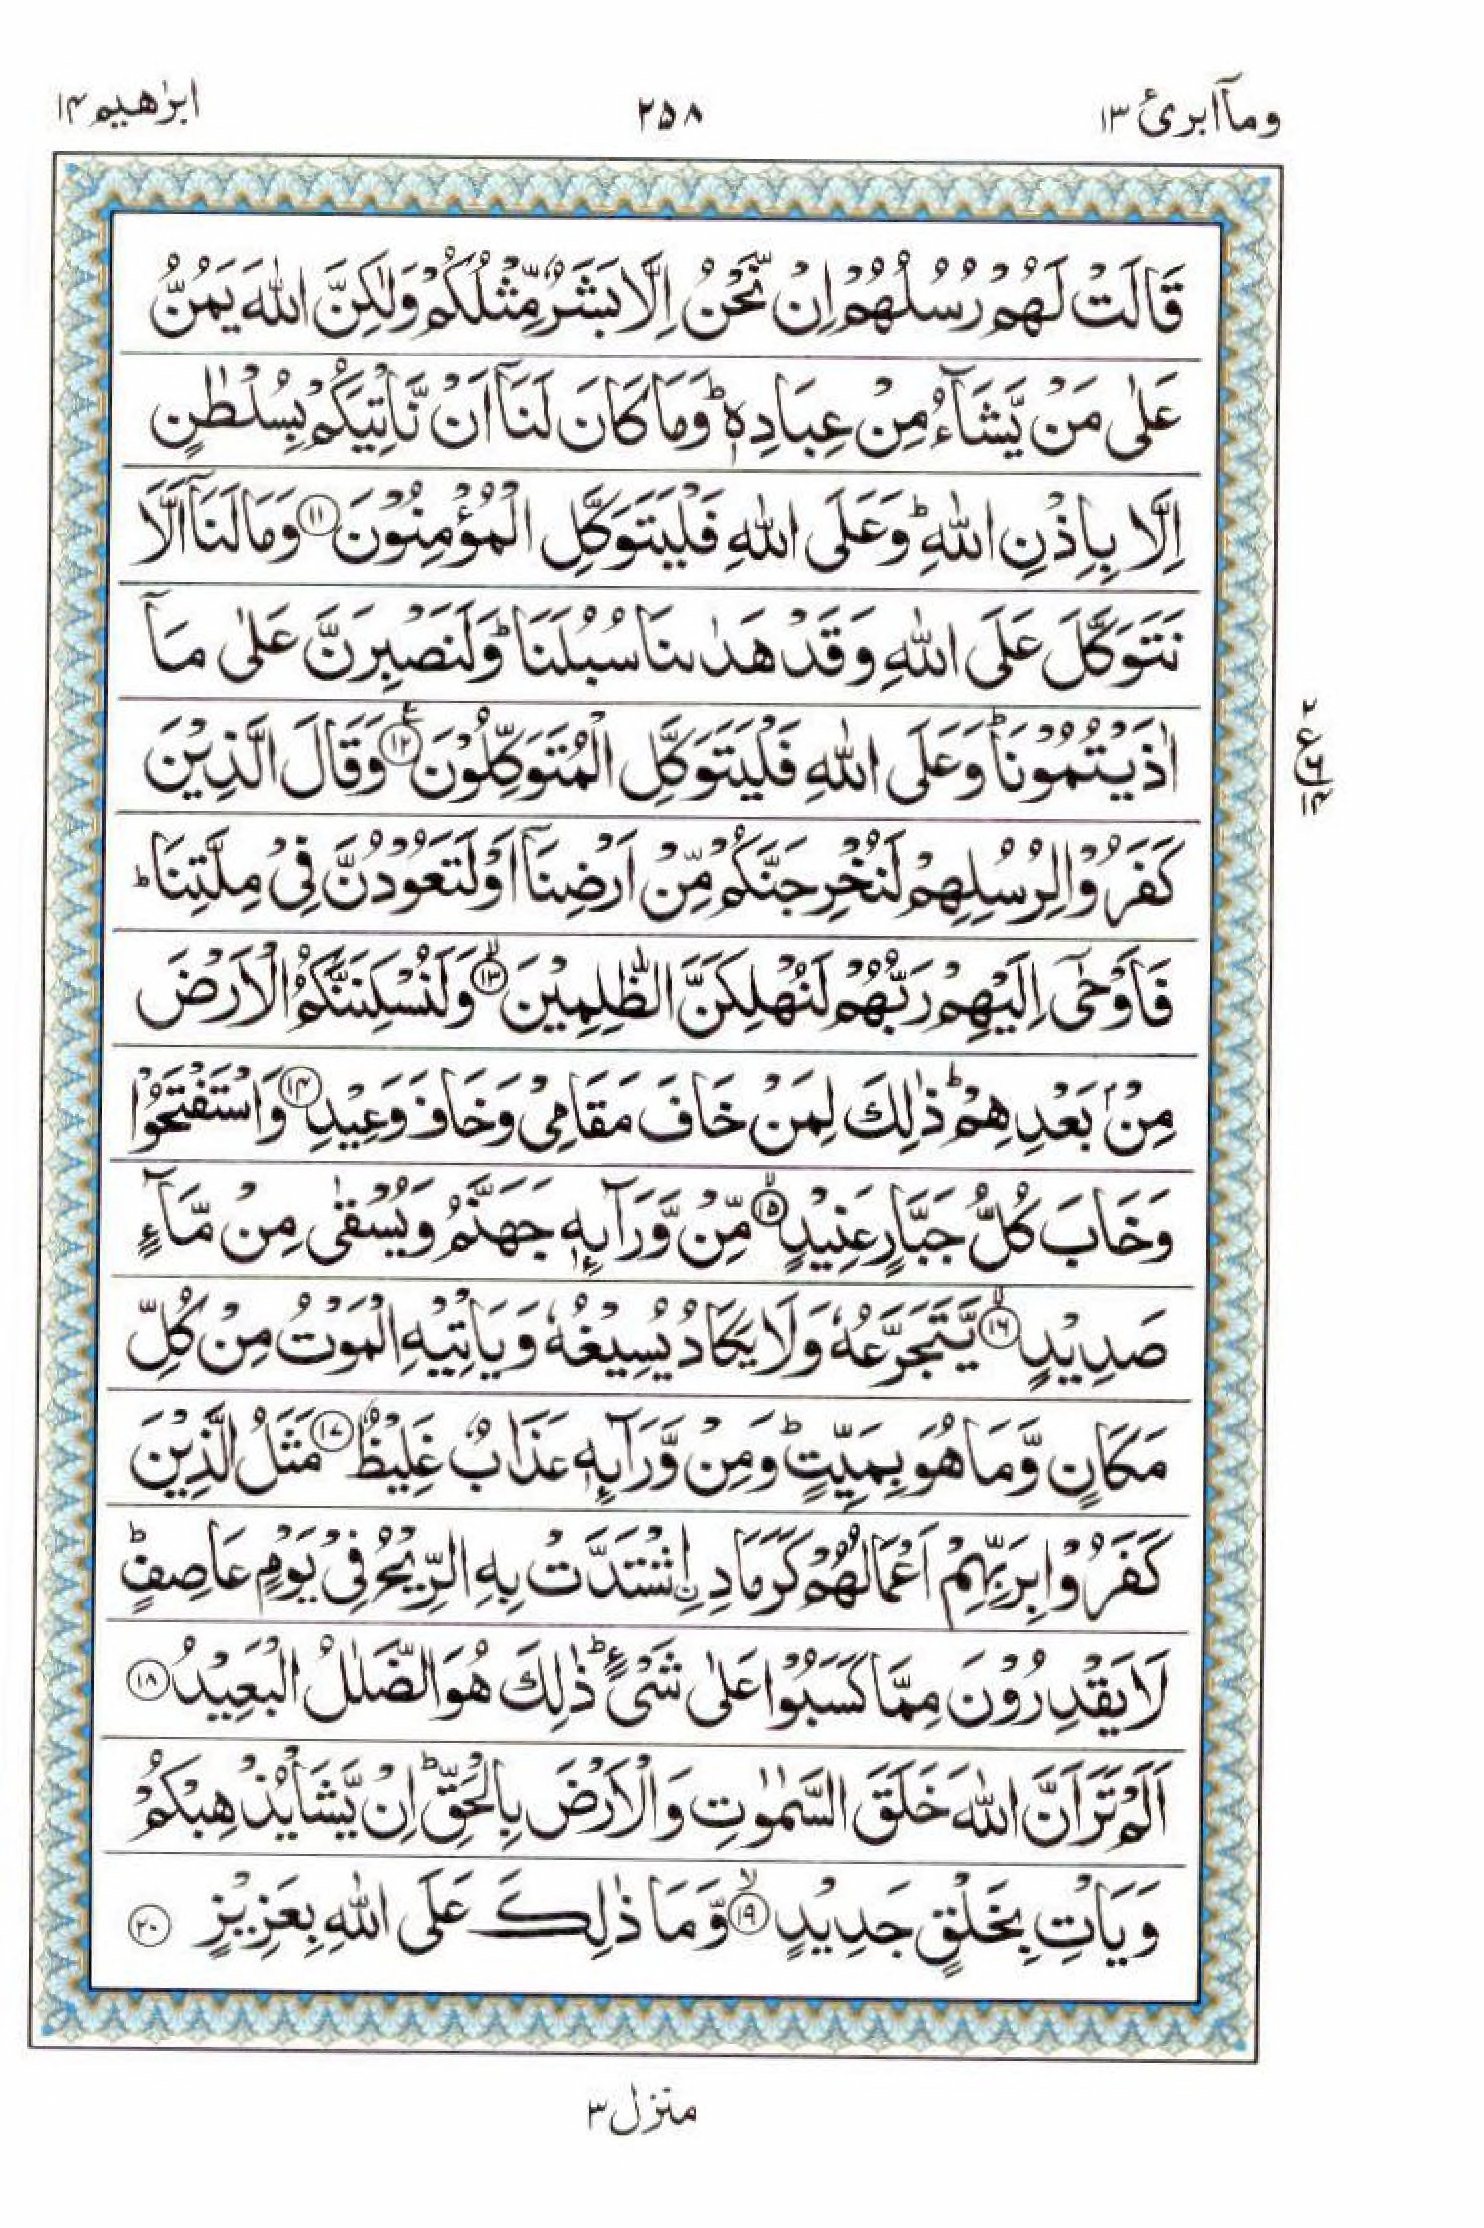 وماۤابرئ ١٣
٢٥٨
ابرٰهيم ١٤
قَالَتْ لَهُمْ رُسُلُهُمْ اِنْ نَّحْنُ اِلَّا بَشَرٌ مِّثْلُكُمْ وَلٰكِنَّ اللّٰهَ يَمُنُّ
عَلٰى مَنْ يَّشَآءُ مِنْ عِبَادِهٖ ؕ وَمَا كَانَ لَنَاۤ اَنْ نَّاْتِيَكُمْ بِسُلْطٰنٍ
اِلَّا بِاِذْنِ اللّٰهِ ؕ وَعَلَى اللّٰهِ فَلْيَتَوَكَّلِ الْمُؤْمِنُوْنَ ١١ وَمَا لَنَاۤ اَلَّا
نَتَوَكَّلَ عَلَى اللّٰهِ وَقَدْ هَدٰىنَا سُبُلَنَا ؕ وَلَنَصْبِرَنَّ عَلٰى مَاۤ
اٰذَيْتُمُوْنَا ؕ وَعَلَى اللّٰهِ فَلْيَتَوَكَّلِ الْمُتَوَكِّلُوْنَ ١٢ وَقَالَ الَّذِيْنَ
كَفَرُوْا لِرُسُلِهِمْ لَنُخْرِجَنَّكُمْ مِّنْ اَرْضِنَاۤ اَوْ لَتَعُوْدُنَّ فِيْ مِلَّتِنَا ؕ
فَاَوْحٰۤى اِلَيْهِمْ رَبُّهُمْ لَنُهْلِكَنَّ الظّٰلِمِيْنَ ۙ ١٣ وَلَنُسْكِنَنَّكُمُ الْاَرْضَ
مِنْۢ بَعْدِهِمْ ؕ ذٰلِكَ لِمَنْ خَافَ مَقَامِيْ وَخَافَ وَعِيْدِ ١٤ وَاسْتَفْتَحُوْا
وَخَابَ كُلُّ جَبَّارٍ عَنِيْدٍ ۙ ١٥ مِّنْ وَّرَآئِهٖ جَهَنَّمُ وَيُسْقٰى مِنْ مَّآءٍ
صَدِيْدٍ ۙ ١٦ يَّتَجَرَّعُهٗ وَلَا يَكَادُ يُسِيْغُهٗ وَيَاْتِيْهِ الْمَوْتُ مِنْ كُلِّ
مَكَانٍ وَّمَا هُوَ بِمَيِّتٍ ؕ وَمِنْ وَّرَآئِهٖ عَذَابٌ غَلِيْظٌ ١٧ مَثَلُ الَّذِيْنَ
كَفَرُوْا بِرَبِّهِمْ اَعْمَالُهُمْ كَرَمَادِ ۨاشْتَدَّتْ بِهِ الرِّيْحُ فِيْ يَوْمٍ عَاصِفٍ ؕ
لَا يَقْدِرُوْنَ مِمَّا كَسَبُوْا عَلٰى شَيْءٍ ؕ ذٰلِكَ هُوَ الضَّلٰلُ الْبَعِيْدُ ١٨
اَلَمْ تَرَ اَنَّ اللّٰهَ خَلَقَ السَّمٰوٰتِ وَالْاَرْضَ بِالْحَقِّ ؕ اِنْ يَّشَاْ يُذْهِبْكُمْ
وَيَاْتِ بِخَلْقٍ جَدِيْدٍ ۙ ١٩ وَّمَا ذٰلِكَ عَلَى اللّٰهِ بِعَزِيْزٍ ٢٠
٢
ع
٦
١٤
منزل ٣